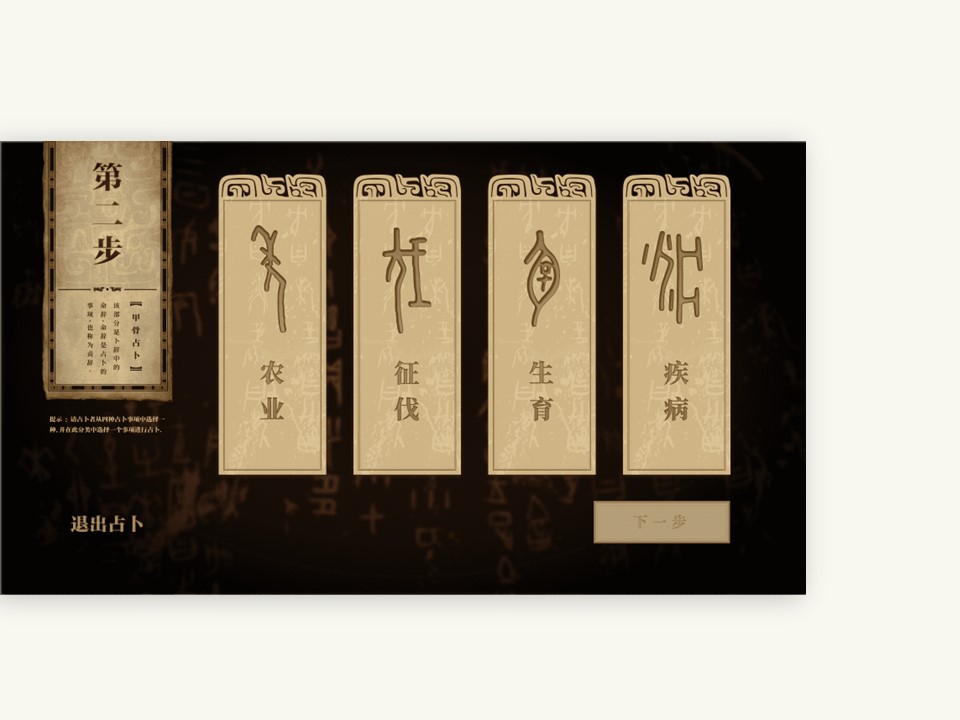 第二步
【甲骨占卜】
该部分是卜辞中的
命辞，命辞是占卜的
事项，也称为贞辞。
提示：请占卜者从四种占卜事项中选择一
种，并在此分类中选择一个事项进行占卜.
退出占卜
农业
征伐
生育
疾病
下一步